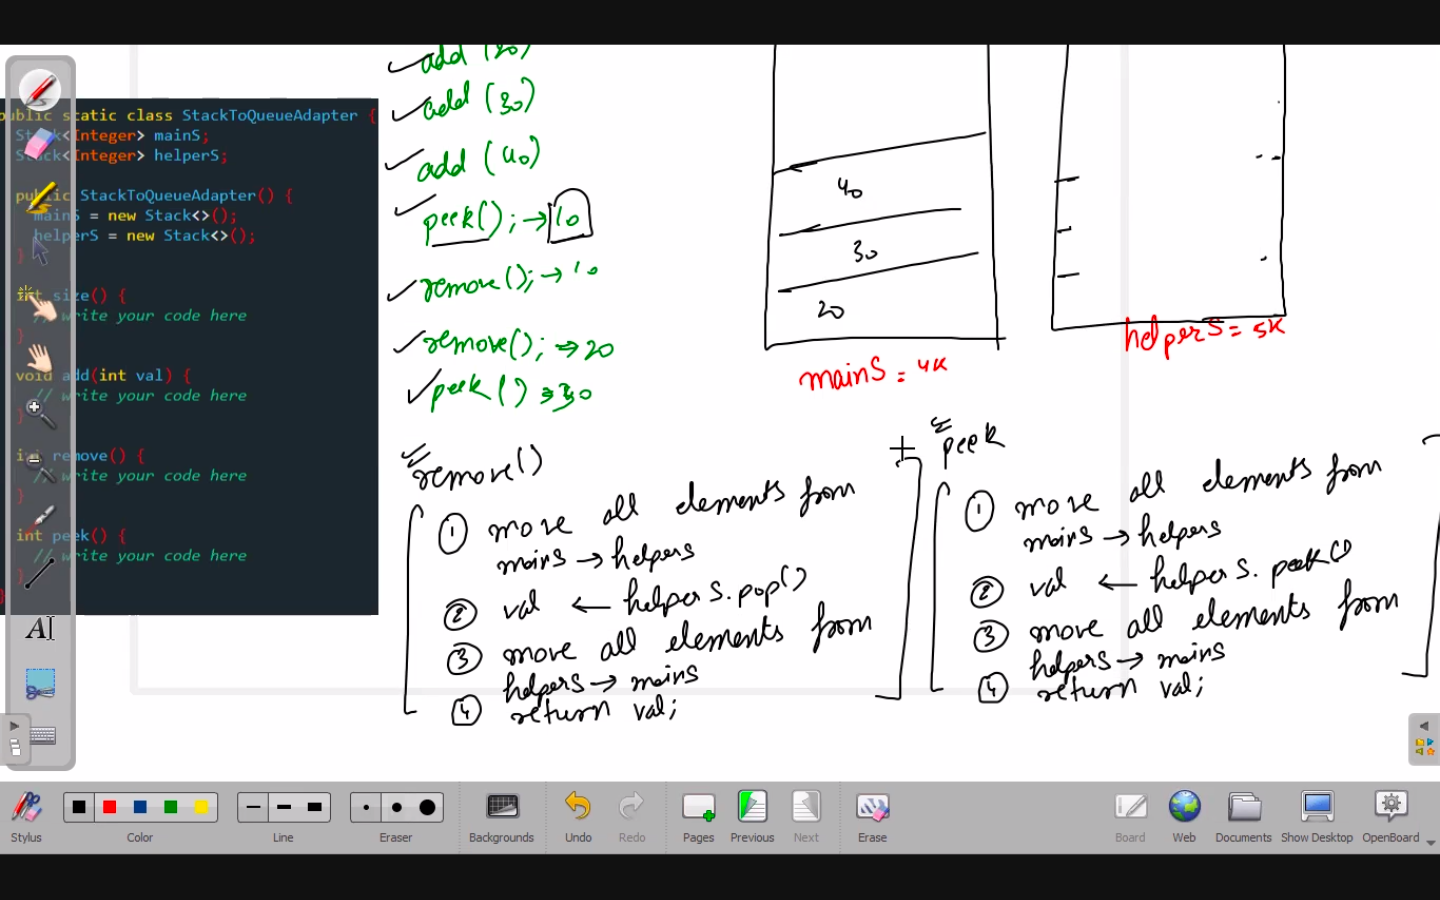 public static class StackToQueueAdapter {
Stack<Integer> mainS;
Stack<Integer> helperS;
public StackToQueueAdapter() {
mainS = new Stack<>();
helperS = new Stack<>();
}
int size() {
// write your code here
}
void add(int val) {
// write your code here
}
int remove() {
// write your code here
}
int peek() {
// write your code here
}
}
add (20)
add (30)
add (40)
peek(); → 10
remove(); → 10
remove(); → 20
peek() → 30
40
30
20
mainS = 4K
helperS = 5K
remove()
① move all elements from
mainS → helpers
② val ← helperS.pop()
③ move all elements from
helpers → mainS
④ return val;
peek
① move all elements from
mainS → helpers
② val ← helperS.peek()
③ move all elements from
helpers → mainS
④ return val;
Stylus
Color
Line
Eraser
Backgrounds
Undo
Redo
Pages
Previous
Next
Erase
Board
Web
Documents
Show Desktop
OpenBoard